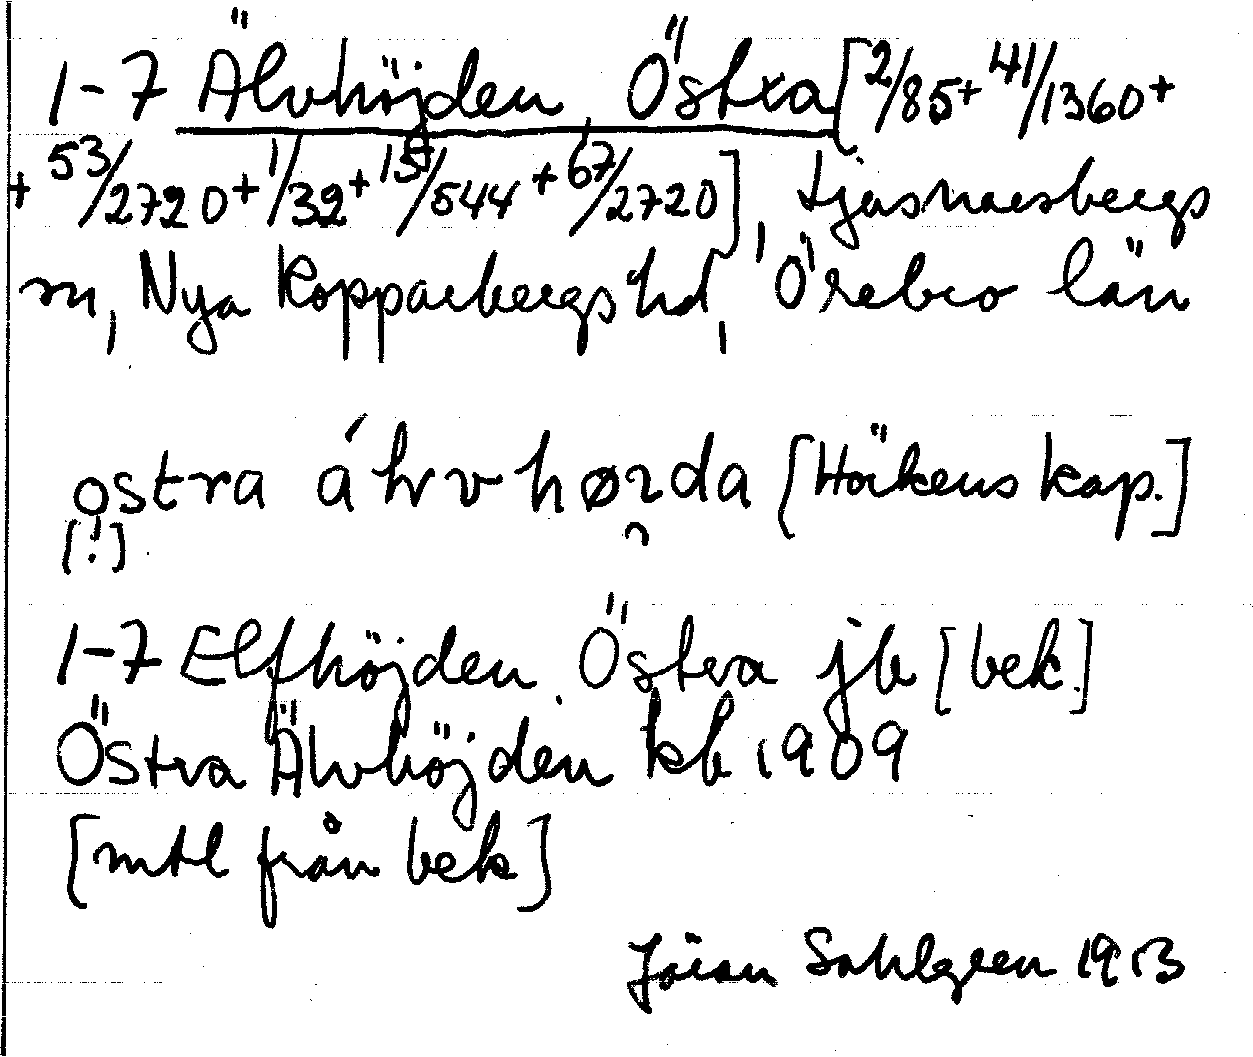 1-7 Älvhöjden Östra [2/85+ 41/1360+
+ 53/2720+ 1/32+ 15/544 + 67/2720], Ljusnarsbergs
sn, Nya Kopparbergs hd, Örebro län
ostra áhrvhørda [Hökens kap.]
[!]
1-7 Elfhöjden Östra jb [bek.]
Östra Älvhöjden kb 1909
[mtl från bek]
Jöran Sahlgren 1913